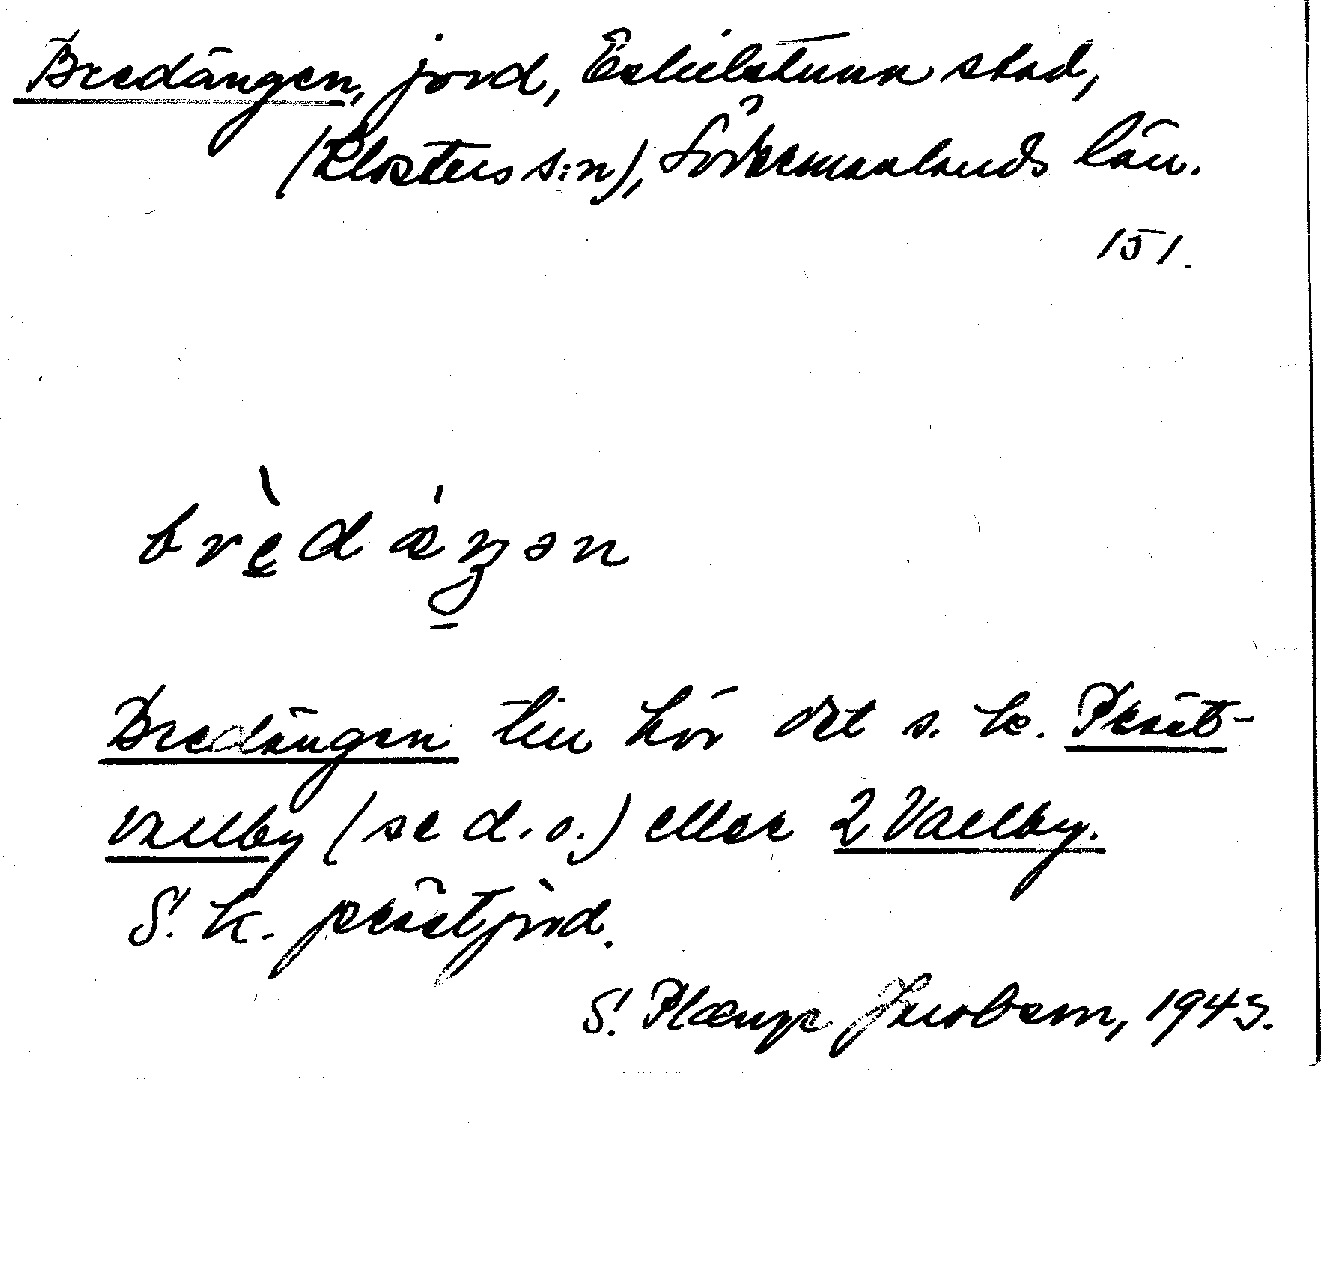 Bredängen, jord, Eskilstuna stad,
(Klosters s:n), Södermanlands län.
151.
brèdáŋən
Bredängen till hör det s. k. Präst-
vallby (se d. o.) eller 2 Vallby.
S. k. prästjord.
S. Plænge Jacobson, 1943.